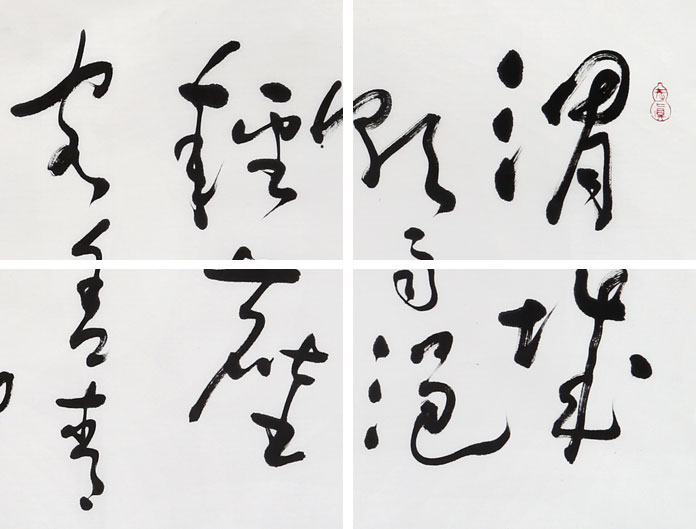 渭城
朝雨浥
輕塵
客舍青青